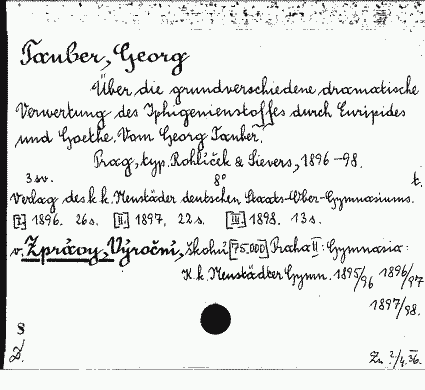 Tauber, Georg
Über die grundverschiedene dramatische
Verwertung des Iphigenienstoffes durch Euripides
und Goethe. Vom Georg Tauber.
Prag, typ. Rohlíček & Sievers, 1896-98.
3 sv. 8° t.
Verlag des k. k. Neustäder deutschen Staats-Ober-Gymnasiums.
[I.] 1896. 26 s. [II.] 1897, 22 s. [III.] 1898. 13 s.
v. Zprávy, Výroční, školní [75.000] Praha II: Gymnasia:
K. k. Neustädter Gymn. 1895/96 1896/97
1897/98.
8
D. Zn. 2/4.36.